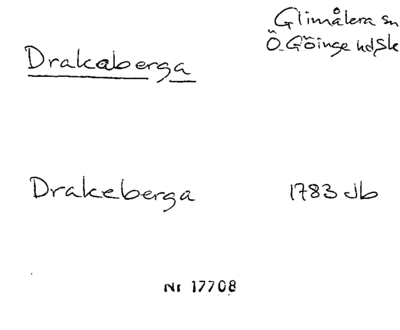 Glimåkra sn
Ö. Göinge hd, Sk
Drakaberga
Drakeberga 1783 Jb
Nr 17708